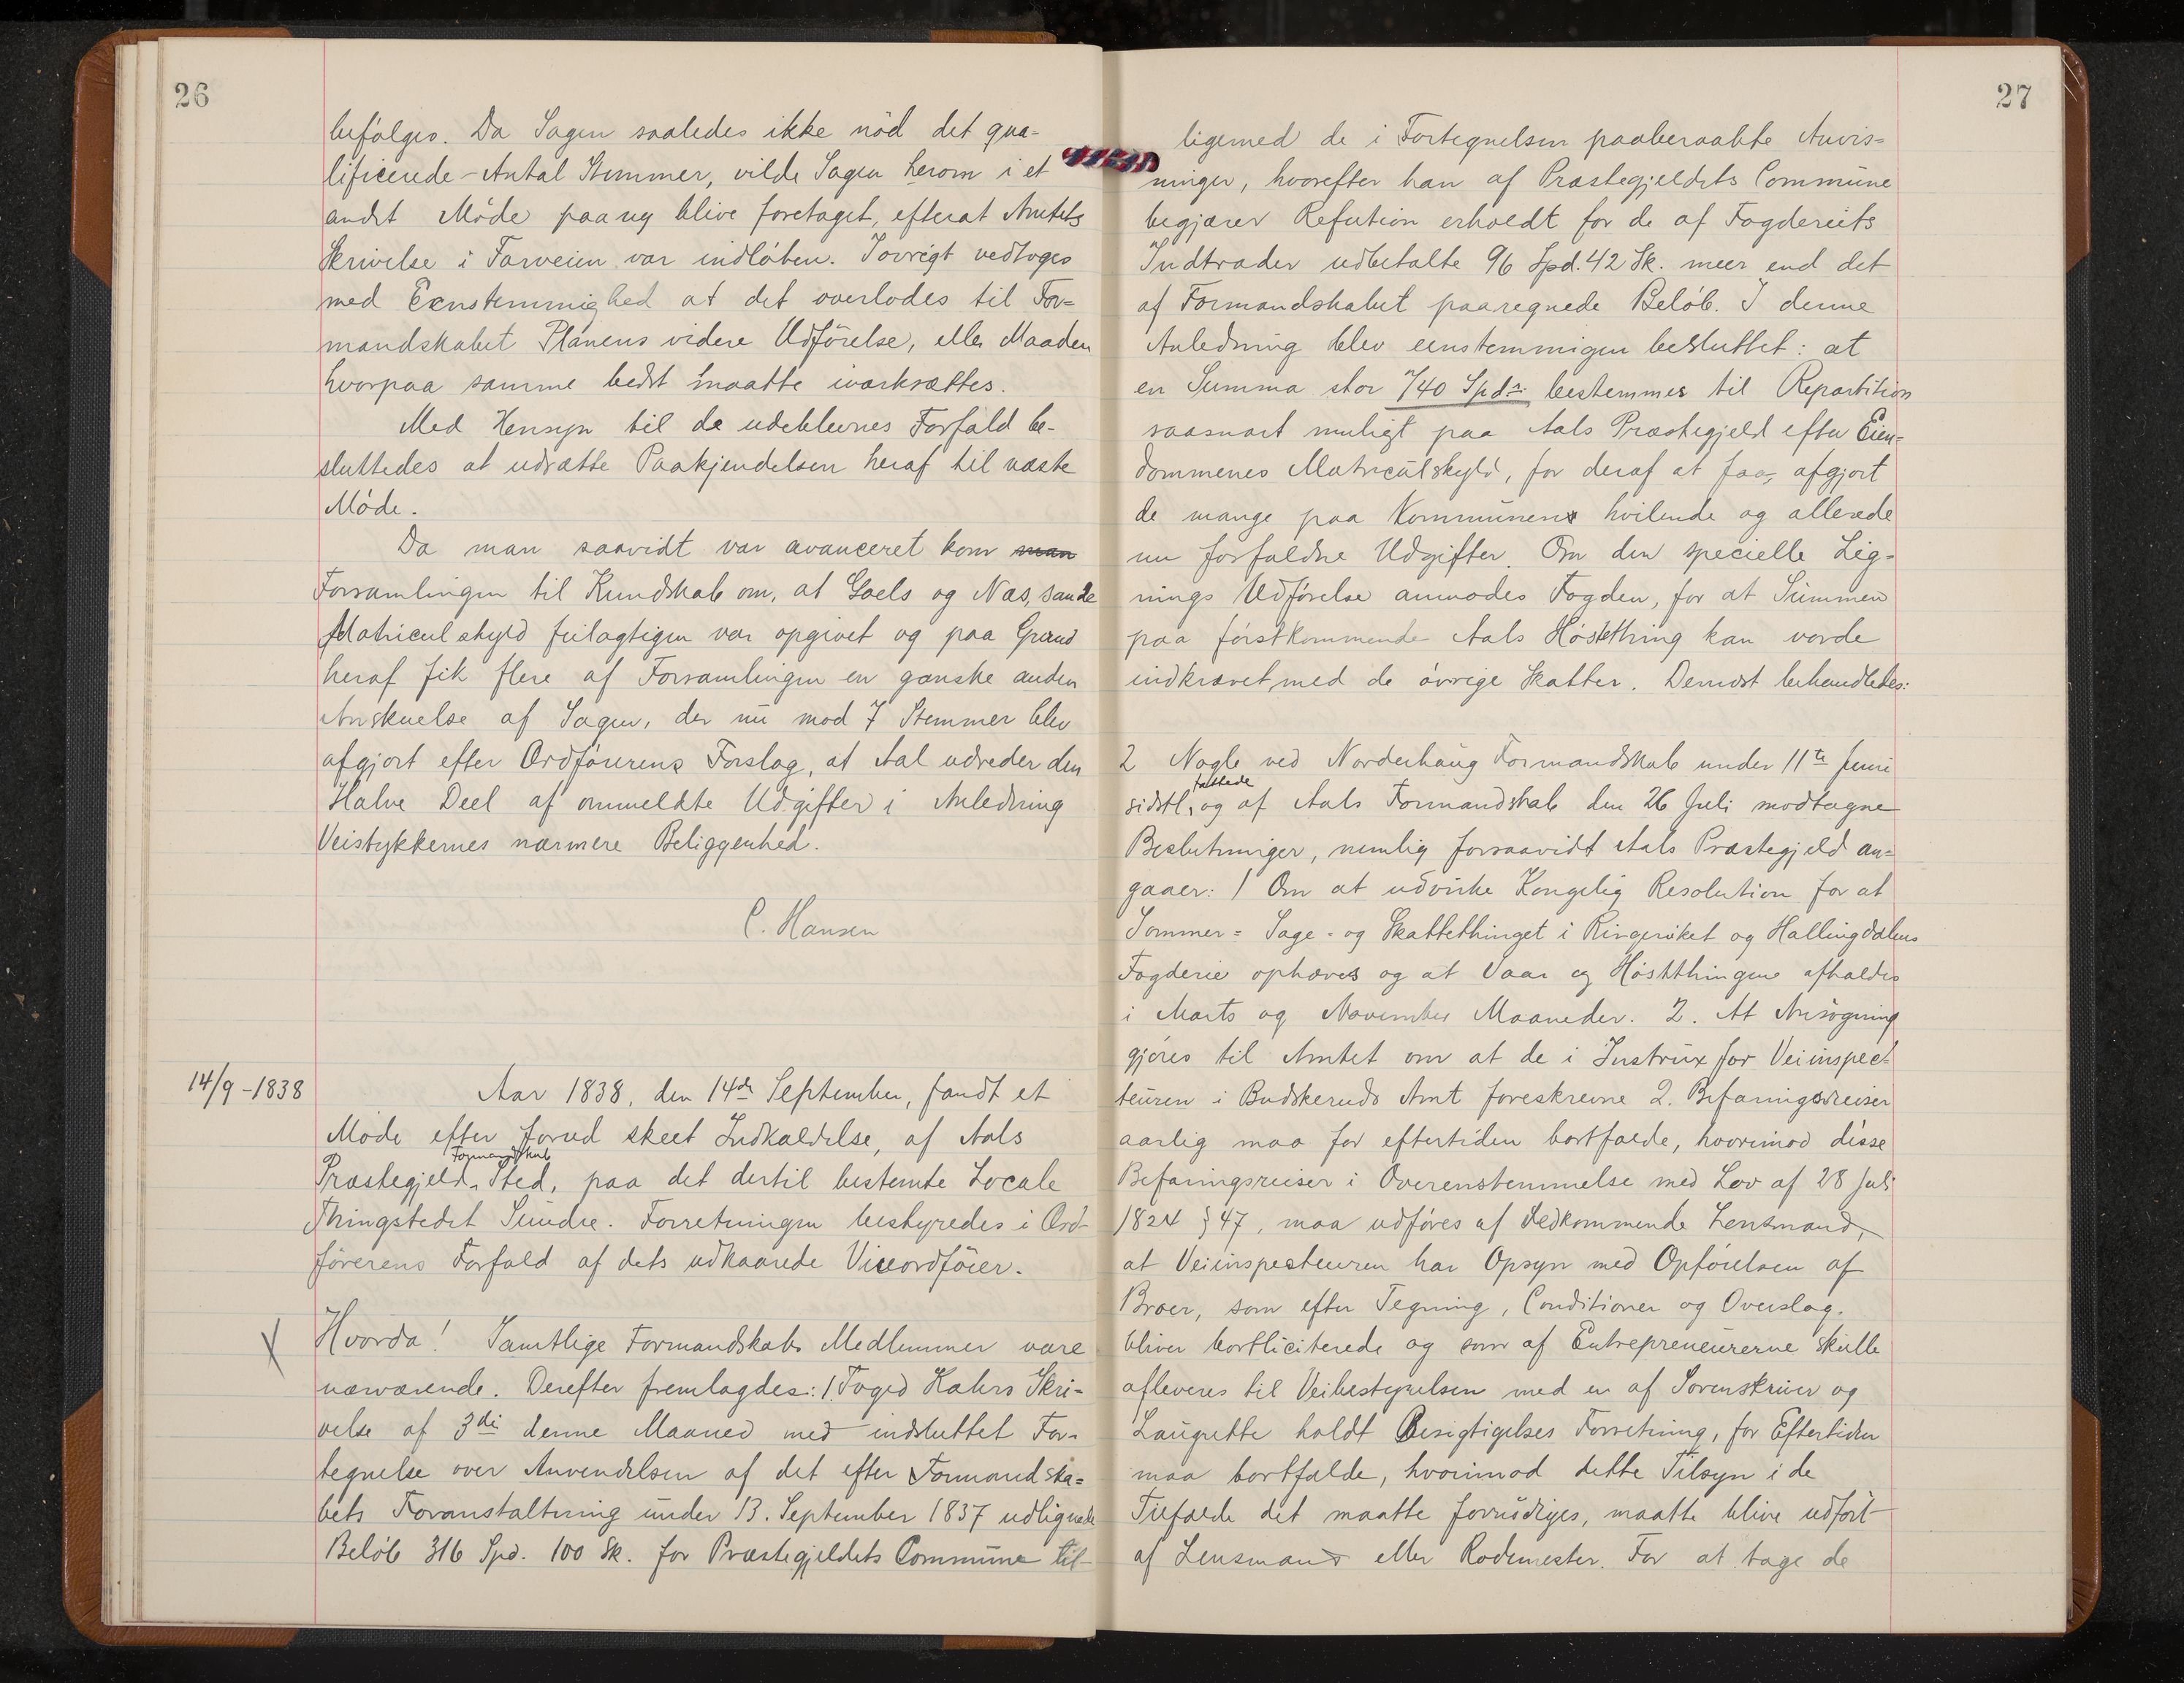 26
befølges. Da Sagen saaledes ikke nød det qua=
lificerede-Antal Stemmer, vilde Sagen herom i et
andet Møde paa ny blive foretaget, efterat Amtets
Skrivelse i Farveien var indløben. Iøvrigt vedtoges
med Eenstemmighed at det overlodes til For=
mandskabet Planens videre Udførelse, eller Maaden
hvorpaa samme bedst maatte iværksættes.
Med Hensyn til de udeblevnes Forfald be-
sluttedes at udsætte Paakjendelsen heraf til næste
Møde.
Da man saavidt var avanceret kom man
Forsamlingen til Kundskab om, at Goels og Næs, sande
Matriculskyld feilagtigen var opgivet og paa Grund
heraf fik flere af Forsamlingen en ganske anden
Anskuelse af Sagen, der nu mod 7 Stemmer blev
afgjort efter Ordførerens Forslag, at Aal udreder den
Halve Deel af ommeldte Udgifter i Anledning
Veistykkernes nærmere Beliggenhed.
C. Hansen
14/9-1838
Aar 1838, den 14de September, fandt et
Møde efter forud skeet Indkaldelse, af Aals
Formandskab
Præstegjeld, Sted, paa det dertil bestemte Locale
Thingstedet Sundre. Forretningen bestyredes i Ord-
førerens Forfald af dets udkaarede Viceordfører.
X Hvorda! Samtlige Formandskabs Medlemmer vare
nærværende. Derefter fremlagdes: 1. Foged Kahrs Skri=
velse af 3die denne Maaned med indsluttet For=
tegnelse over Anvendelsen af det efter Formandska=
bets Foranstaltning under 13. September 1837 udlignede
Beløb 316 Spd. 100 Sk. for Præstegjeldets Commune til-
27
ligemed de i Fortegnelsen paaberaabte Anvis=
ninger, hvorefter han af Præstegjeldets Commune
begjærer Refution erholdt for de af Fogderiets
Indtrader udbetalte 96 Spd. 42 Sk. meer end det
af Formandskabet paaregnede Beløb. I denne
Anledning blev eenstemmigen besluttet: at
en Summa stor 740 Spdr. bestemmes til Repartition
saasnart muligt paa Aals Præstegjeld efter Eien=
dommenes Matriculskyld, for deraf at faa, afgjort
de mange paa Kommunens hvilende og allerede
nu forfaldne Udgifter. Om den specielle Lig=
nings Udførelse anmodes Fogden, for at Summen
paa førstkommende Aals Høstthing kan vorde
indkrævet, med de øvrige Skatter. Dernæst behandledes:
2 Nogle ved Norderhaug Formandskab under 11te Juni
fattede
sidstl, og af Aals Formandskab den 26 Juli modtagne
Beslutninger, nemlig forsaavidt Aals Præstegjeld an=
gaaer: 1 Om at udvirke Kongelig Resolution for at
Sommer= Sage- og Skattethinget i Ringeriket og Hallingdalens
Fogderie ophæves og at Vaar og Høstthingene afholdes
i Marts og November Maaneder. 2. At Ansøgning
gjøres til Amtet om at de i Instrux for Veiinspec=
teuren i Budskeruds Amt foreskrevne 2. Befaringsreiser
aarlig maa for eftertiden bortfalde, hvorimod disse
Befaringsreiser i Overenstemmelse med Lov af 28 Juli
1824 § 47, maa udføres af Vedkommende Lensmand,
at Veiinspecteuren har Opsyn med Opførelsen af
Broer, som efter Tegning, Conditioner og Overslag
bliver bortliciterede og som af Entrepreneurerne skulle
afleveres til Veibestyrelsen med en af Sorenskriver og
Laugrette holdt Besigtigelses Forretning, for Eftertiden
maa bortfalde, hvorimod dette Tilsyn i de
Tilfælde det maatte fornødiges, maatte blive udført
af Lensmand eller Rodemester. For at tage de